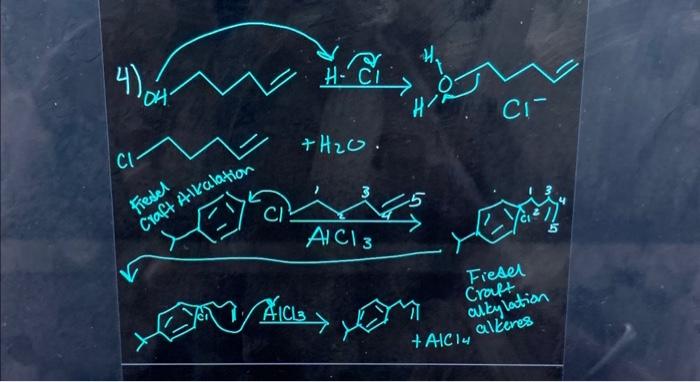 4)
OH
H- Cl
H
O
H
Cl-
Cl
+ H2O .
Fiedel
Craft Alkalation
Cl
1 2 3 4 5
AlCl3
Cl
1 2 3 4 5
Fiedel
Craft
alkylation
alkeres
Cl
AlCl3
+ AlCl4